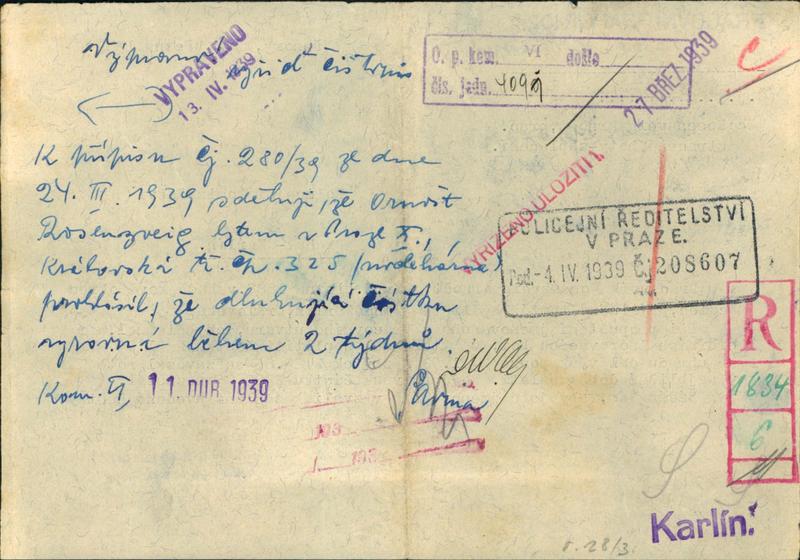 VYPRAVENO
13. IV. 1939
O. p. kom. VI došlo
čís. jedn.
27 BŘEZ. 1939
K přípisu čj. 280/39 ze dne
24. III. 1939 sděluji, že Arnošt
Rosenzweig bytem v Praze X.,
Královská tř. čp. 325
prohlásil, že dlužnou částku
vyrovná během 2 týdnů.
Kom. VI, 11 DUB. 1939
VYŘÍZENO ULOŽITI
POLICEJNÍ ŘEDITELSTVÍ
V PRAZE.
Pod. -4. IV. 1939 Čj 208607
R
1834
6
Karlín.
28/3.